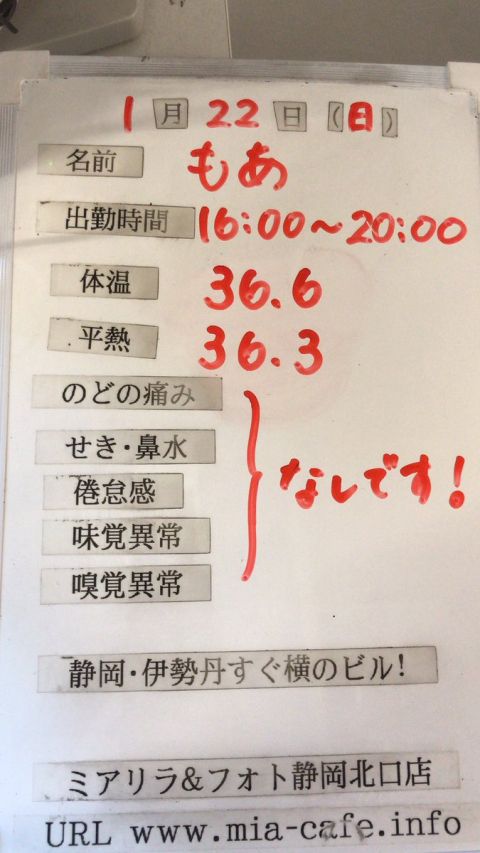 1月22日(日)
名前 もあ
出勤時間 16:00~20:00
体温 36.6
平熱 36.3
のどの痛み
せき・鼻水
倦怠感 なしです!
味覚異常
嗅覚異常
静岡・伊勢丹すぐ横のビル!
ミアリラ&フォト静岡北口店
URL www.mia-cafe.info